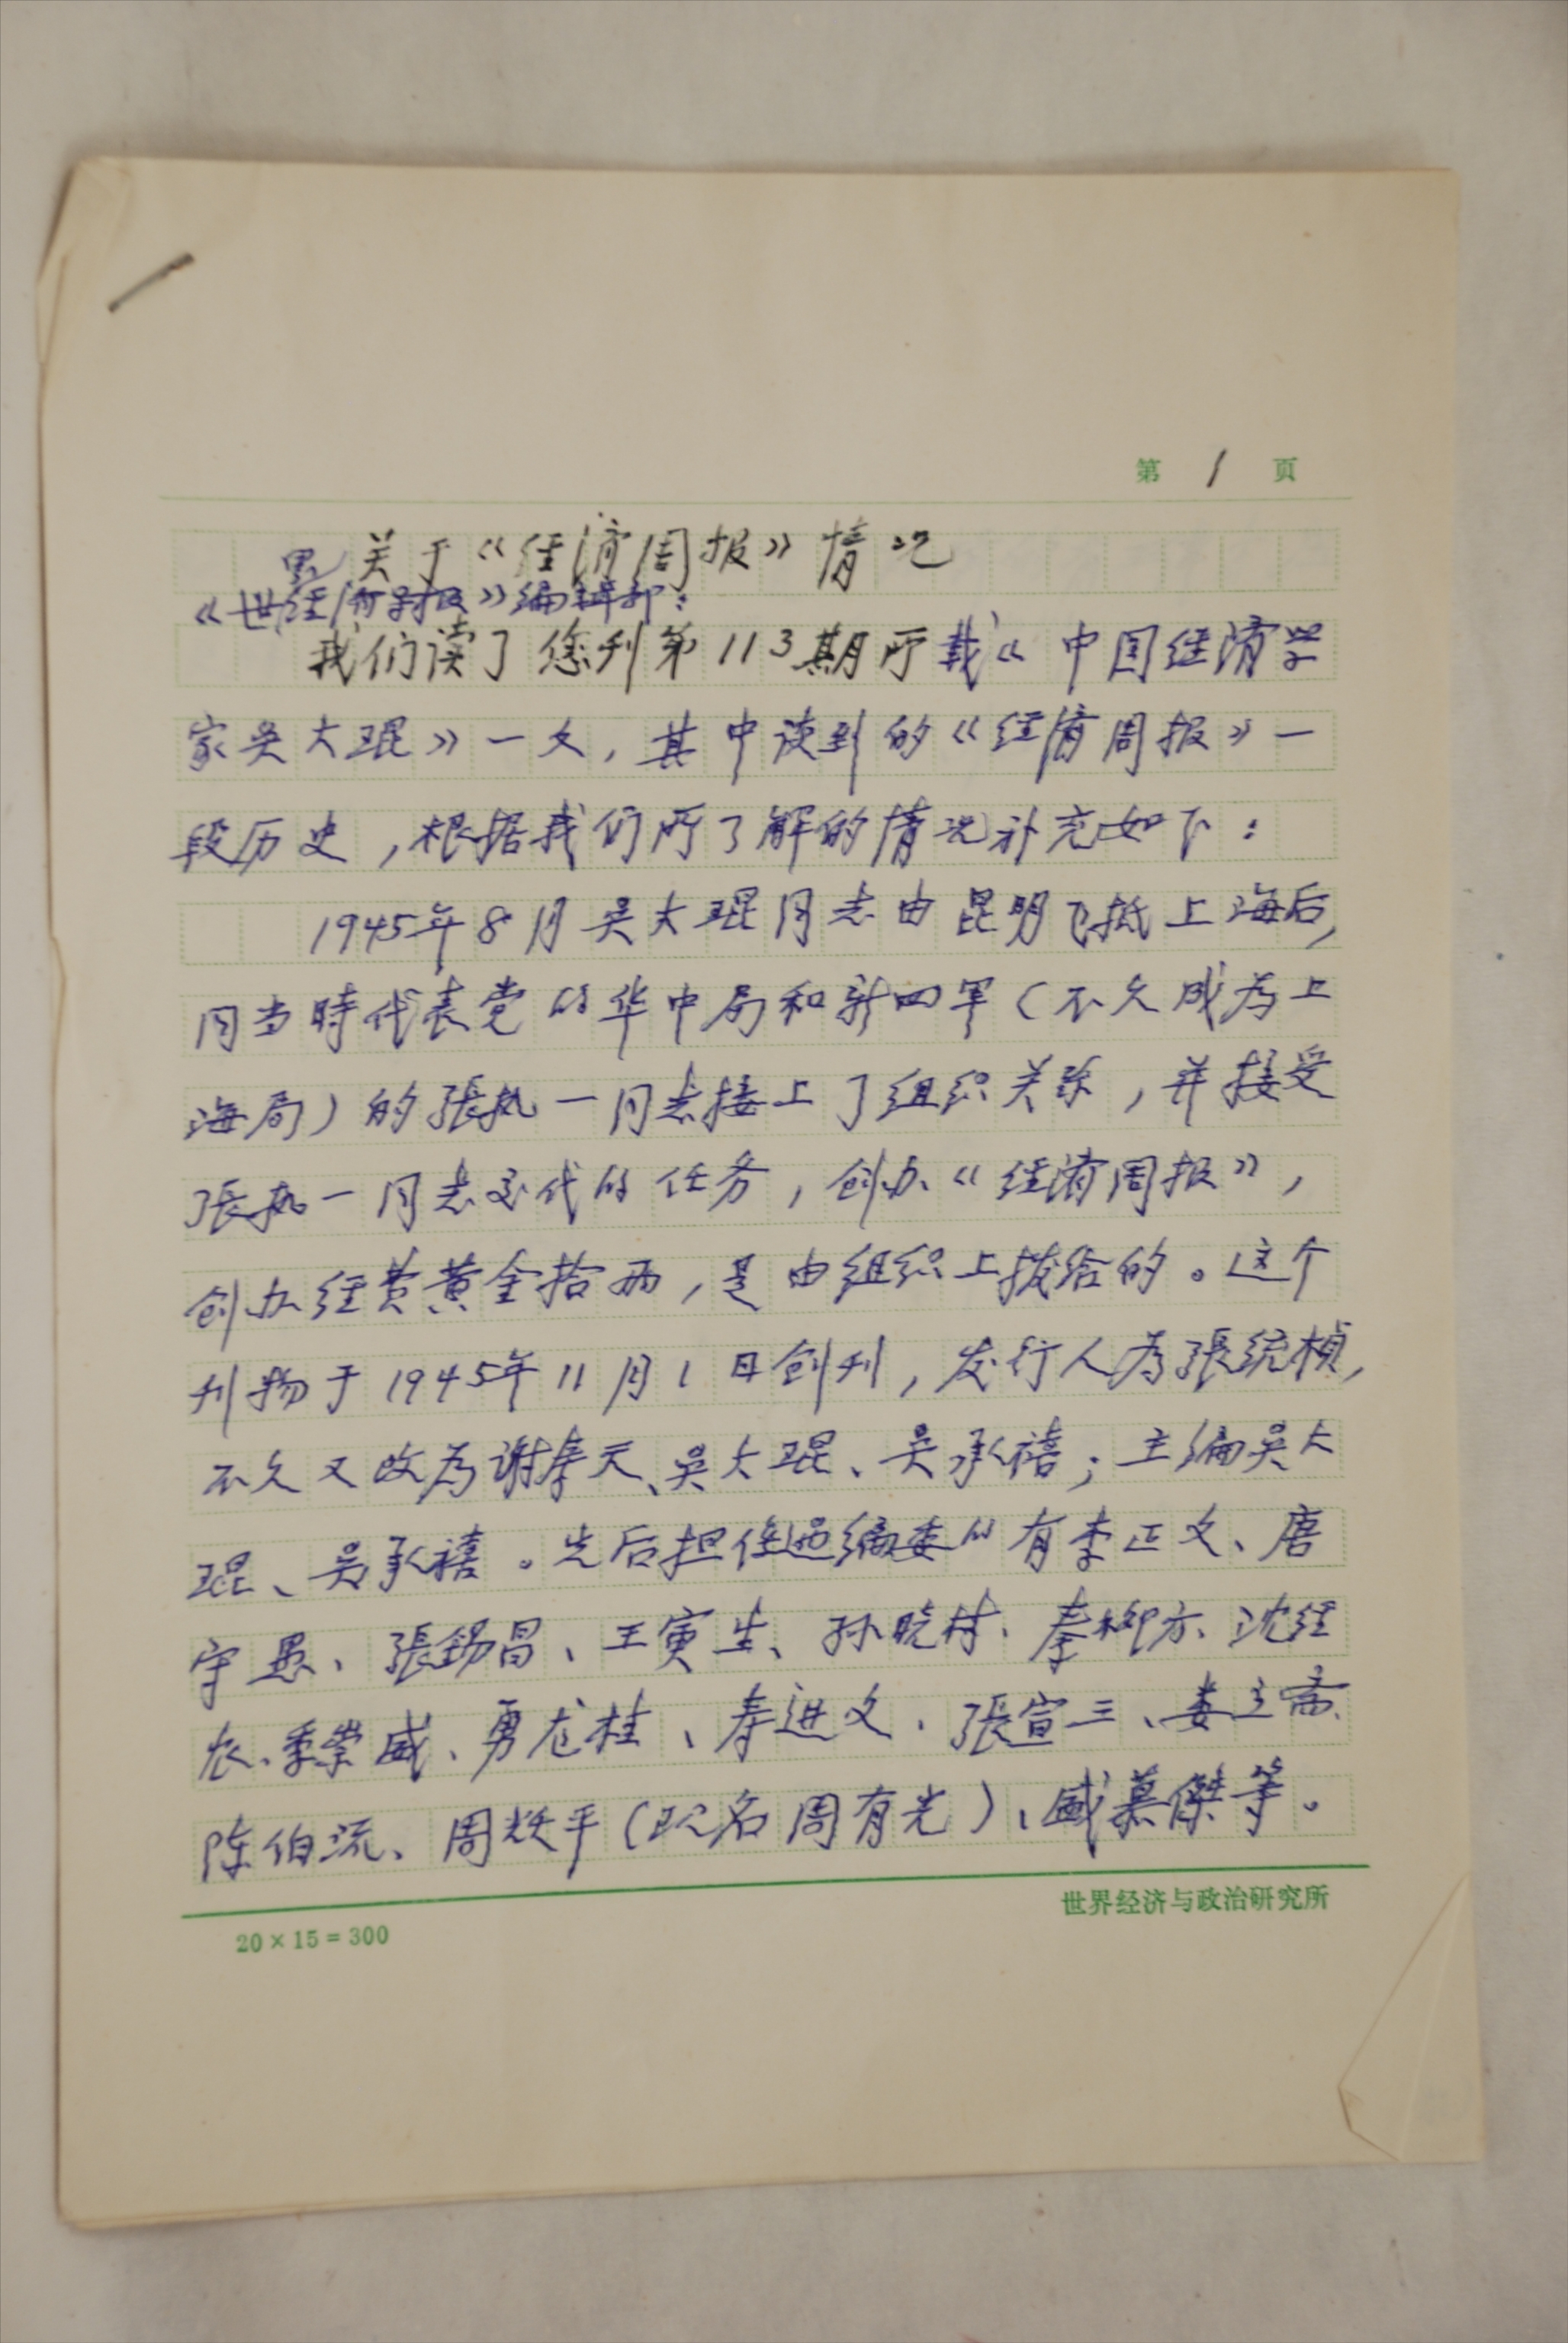 第 1 页
关于《经济周报》情况
《世界经济导报》编辑部：
我们读了您刊第113期所载《中国经济学
家吴大琨》一文，其中谈到的《经济周报》一
段历史，根据我们所了解的情况补充如下：
1945年8月吴大琨同志由昆明飞抵上海后，
同当時代表党的华中局和新四军（不久成为上
海局）的張执一同志接上了组织关系，并接受
張执一同志交代的任务，创办《经济周报》，
创办经费黄金拾两，是由组织上拨给的。这个
刊物于1945年11月1日创刊，发行人为張统楨，
不久又改为谢寿天、吴大琨、吴承禧；主编吴大
琨、吴承禧。先后担任过编委的有李正文、唐
守愚、張錫昌、王寅生、孙晓村、秦柳方、沈经
农、季崇威、勇龙桂、寿进文、張宣三、娄立斋、
陈伯流、周燿平（现名周有光）、盛慕傑等。
20×15＝300
世界经济与政治研究所